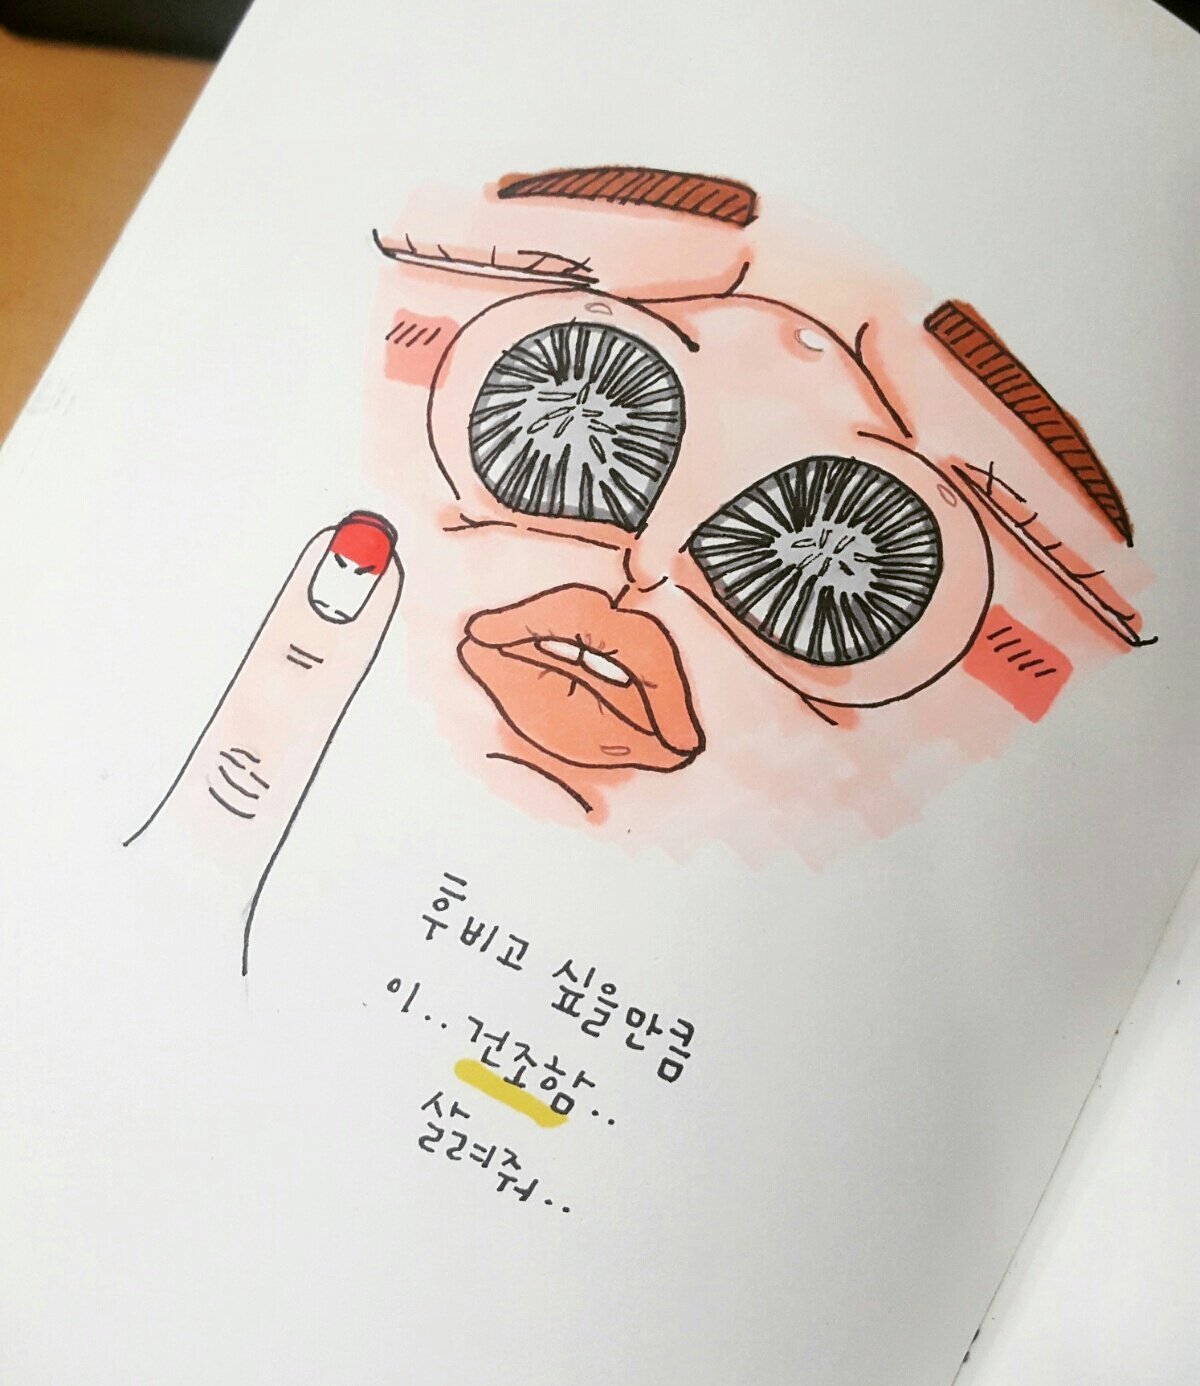 후비고 싶을만큼
이.. 건조함..
살려줘..